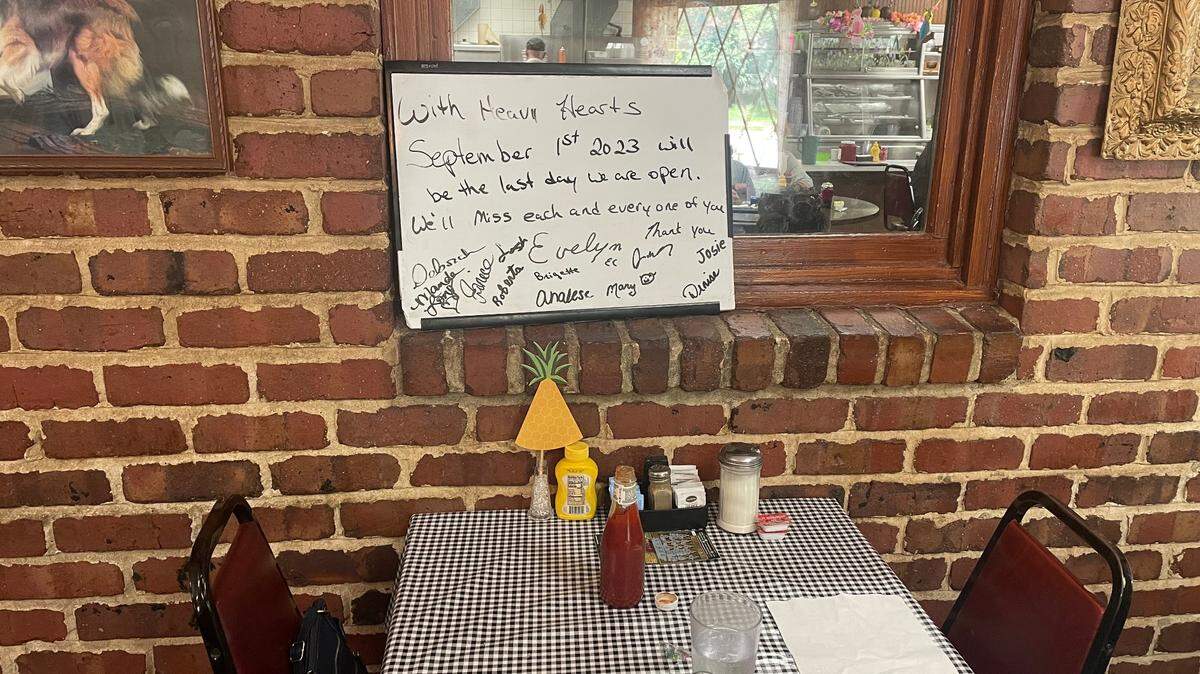 With Heavy Hearts
September 1st 2023 will
be the last day we are open.
We'll Miss each and every one of you
Thank you
Deborah Janice Josh Evelyn
Wanda Roberta Brigette EC Josie
Analese Mary Denise